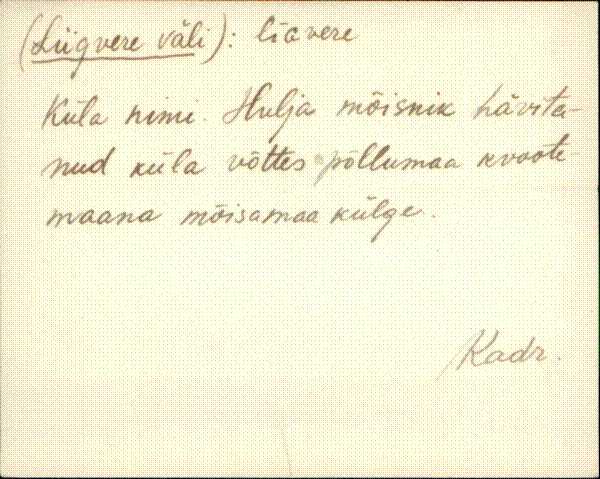 (Liigvere väli): liavere
Küla nimi. Hulja mõisnik hävita-
nud küla võttes põllumaa kvoote-
maana mõisamaa külge.
Kadr.